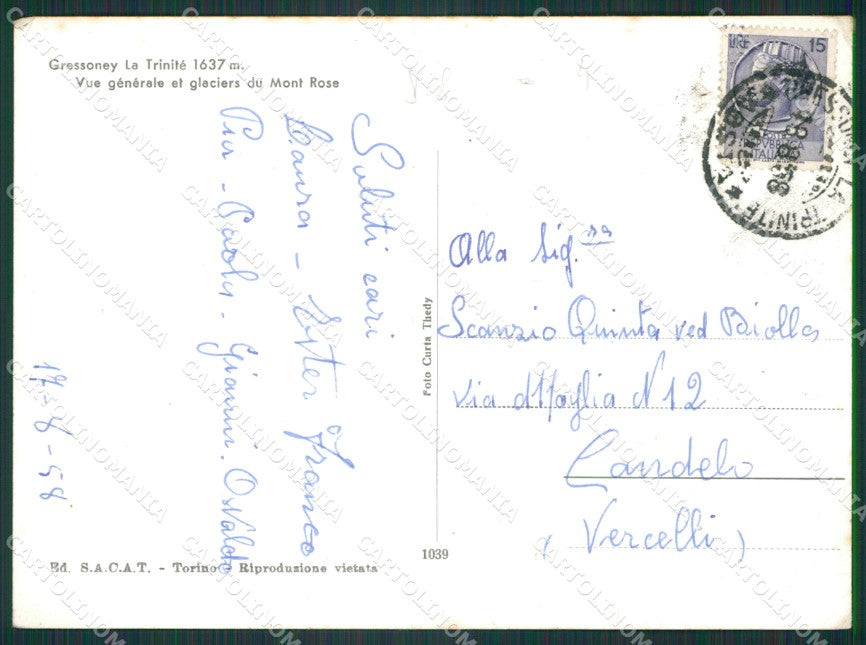 Gressoney La Trinité 1637 m.
Vue générale et glaciers du Mont Rose
Saluti cari
Laura - Ester Franco
Pia - Paola - Gianni. Osvaldo
17-8-58
Foto Curta Thedy
1039
Ed. S.A.C.A.T. - Torino - Riproduzione vietata
LIRE 15
POSTE
REPUBBLICA
ITALIANA
LA TRINITÉ
AOSTA
Alla Sig.ra
Scanzio Quinta ved Biolla
via N 12
Candelo
(Vercelli)
CARTOLINOMANIA